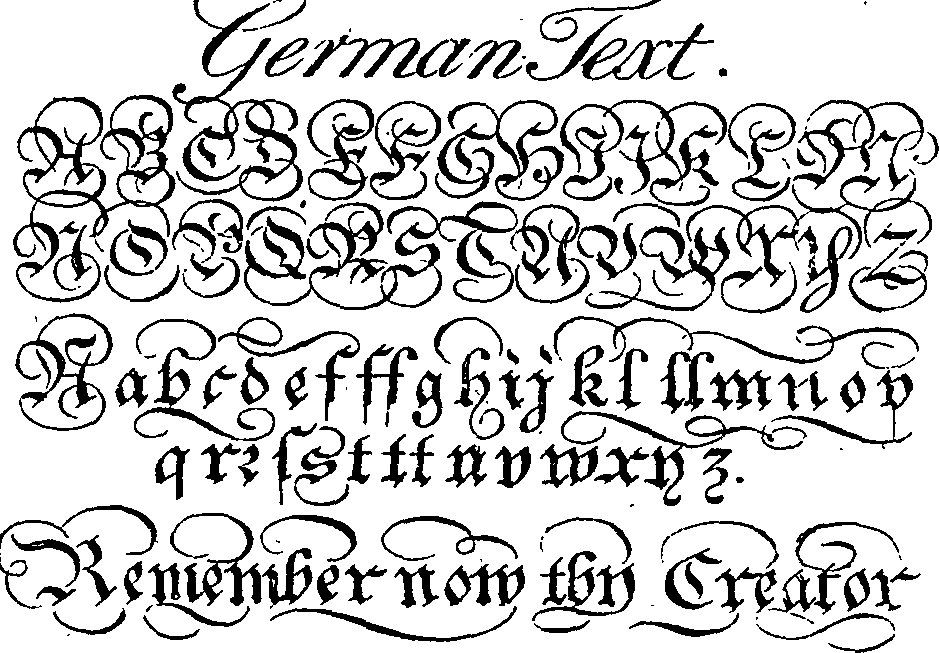 German Text.
A B C D E F G H I J K L M
N O P Q R S T U V W X Y Z
A a b c d e f ff g h i j k l ll m n o p
q r ꝛ ſ s t tt u v w x y z.
Remember now thy Creator